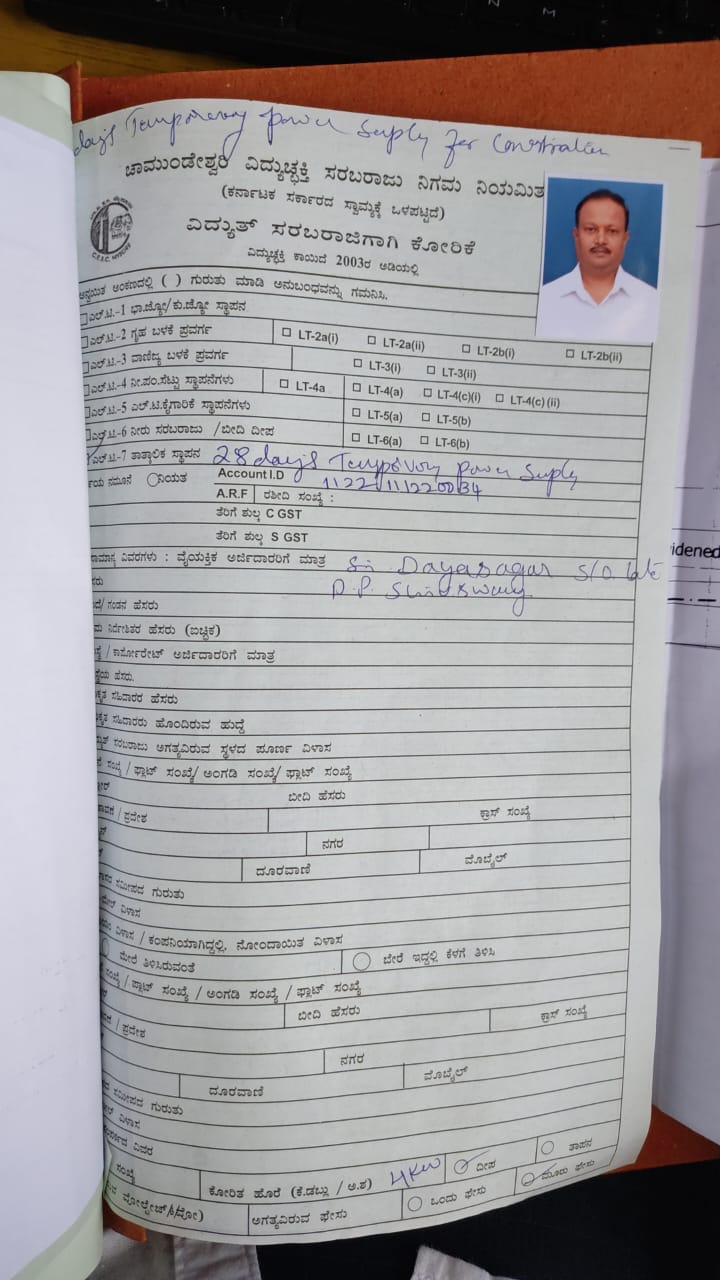 days Temporary power Suply for Constration
ಚಾಮುಂಡೇಶ್ವರಿ ವಿದ್ಯುಚ್ಛಕ್ತಿ ಸರಬರಾಜು ನಿಗಮ ನಿಯಮಿತ
(ಕರ್ನಾಟಕ ಸರ್ಕಾರದ ಸ್ವಾಮ್ಯಕ್ಕೆ ಒಳಪಟ್ಟಿದೆ)
ವಿದ್ಯುತ್ ಸರಬರಾಜಿಗಾಗಿ ಕೋರಿಕೆ
ವಿದ್ಯುಚ್ಛಕ್ತಿ ಕಾಯಿದೆ 2003ರ ಅಡಿಯಲ್ಲಿ
C.E.S.C. MYSORE
ಅನ್ವಯಿತ ಅಂಕಣದಲ್ಲಿ ( ) ಗುರುತು ಮಾಡಿ ಅನುಬಂಧವನ್ನು ಗಮನಿಸಿ.
ಎಲ್.ಟಿ.-1 ಭಾ.ಜ್ಯೋ/ಕು.ಜ್ಯೋ ಸ್ಥಾಪನ
ಎಲ್.ಟಿ.-2 ಗೃಹ ಬಳಕೆ ಪ್ರವರ್ಗ LT-2a(i) LT-2a(ii) LT-2b(i) LT-2b(ii)
ಎಲ್.ಟಿ.-3 ವಾಣಿಜ್ಯ ಬಳಕೆ ಪ್ರವರ್ಗ LT-3(i) LT-3(ii)
ಎಲ್.ಟಿ.-4 ನೀ.ಪಂ.ಸೆಟ್ಟು ಸ್ಥಾಪನೆಗಳು LT-4a LT-4(a) LT-4(c)(i) LT-4(c)(ii)
ಎಲ್.ಟಿ.-5 ಎಲ್.ಟಿ.ಕೈಗಾರಿಕೆ ಸ್ಥಾಪನೆಗಳು LT-5(a) LT-5(b)
ಎಲ್.ಟಿ.-6 ನೀರು ಸರಬರಾಜು /ಬೀದಿ ದೀಪ LT-6(a) LT-6(b)
ಎಲ್.ಟಿ.-7 ತಾತ್ಕಾಲಿಕ ಸ್ಥಾಪನ 28 days Temporary power Suply
ನಮೂನೆ ನಿಯತ Account I.D
A.R.F ರಶೀದಿ ಸಂಖ್ಯೆ :
ತೆರಿಗೆ ಶುಲ್ಕ C GST
ತೆರಿಗೆ ಶುಲ್ಕ S GST
ವಿವರಗಳು : ವೈಯಕ್ತಿಕ ಅರ್ಜಿದಾರರಿಗೆ ಮಾತ್ರ Sri Dayasagar S/O late
ಸರು D.P.
ಗಂಡನ ಹೆಸರು
ನಿರ್ದೇಶಿತರ ಹೆಸರು (ಐಚ್ಛಿಕ)
/ ಕಾರ್ಪೋರೇಟ್ ಅರ್ಜಿದಾರರಿಗೆ ಮಾತ್ರ
ಹೆಸರು.
ಸಹಿದಾರರ ಹೆಸರು
ಸಹಿದಾರರು ಹೊಂದಿರುವ ಹುದ್ದೆ
ಸರಬರಾಜು ಅಗತ್ಯವಿರುವ ಸ್ಥಳದ ಪೂರ್ಣ ವಿಳಾಸ
ಸಂಖ್ಯೆ / ಫ್ಲಾಟ್ ಸಂಖ್ಯೆ/ ಅಂಗಡಿ ಸಂಖ್ಯೆ/ ಫ್ಲಾಟ್ ಸಂಖ್ಯೆ
ಬೀದಿ ಹೆಸರು
/ ಪ್ರದೇಶ ಕ್ರಾಸ್ ಸಂಖ್ಯೆ
ನಗರ
ದೂರವಾಣಿ ಮೊಬೈಲ್
ಸಮೀಪದ ಗುರುತು
ವಿಳಾಸ
ವಿಳಾಸ / ಕಂಪನಿಯಾಗಿದ್ದಲ್ಲಿ, ನೋಂದಾಯಿತ ವಿಳಾಸ
ಮೇಲೆ ತಿಳಿಸಿರುವಂತೆ ಬೇರೆ ಇದ್ದಲ್ಲಿ ಕೆಳಗೆ ತಿಳಿಸಿ
ಸಂಖ್ಯೆ / ಪ್ಲಾಟ್ ಸಂಖ್ಯೆ / ಅಂಗಡಿ ಸಂಖ್ಯೆ / ಫ್ಲಾಟ್ ಸಂಖ್ಯೆ
ಬೀದಿ ಹೆಸರು ಕ್ರಾಸ್ ಸಂಖ್ಯೆ
/ ಪ್ರದೇಶ
ನಗರ
ದೂರವಾಣಿ ಮೊಬೈಲ್
ಸಮೀಪದ ಗುರುತು
ವಿಳಾಸ
ವಿವರ
ಸಂಖ್ಯೆ ಕೋರಿತ ಹೊರೆ (ಕೆ.ಡಬ್ಲು / ಅ.ಶ) 4KW ದೀಪ ತಾಪನ
ಅಗತ್ಯವಿರುವ ಫೇಸು ಒಂದು ಫೇಸು ಮೂರು ಫೇಸು
idened